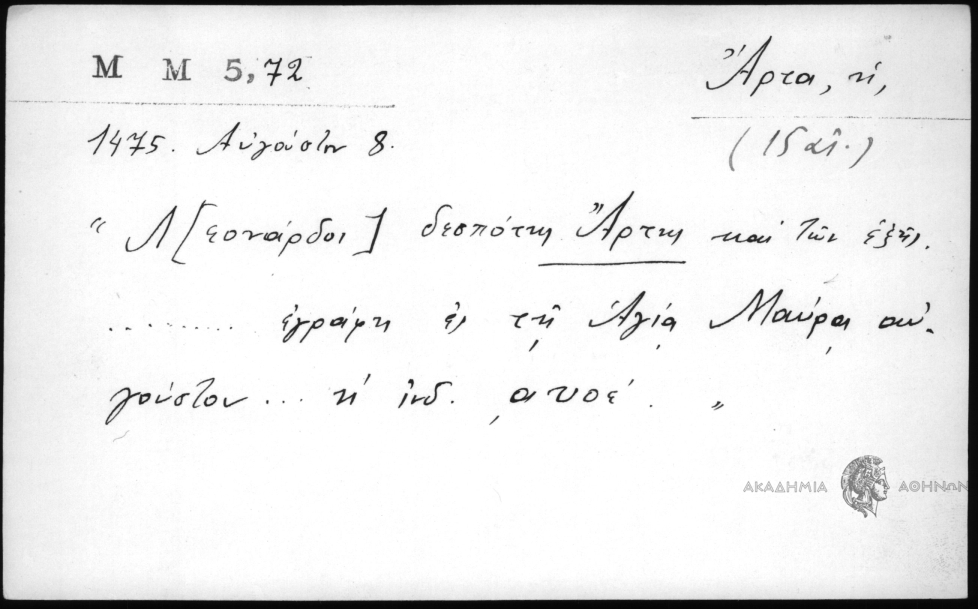 M M 5,72
Ἄρτα, ἡ,
1475. Αὐγούστου 8.
(15 αἰ.)
“ Λ[εονάρδος] δεσπότης Ἄρτης καὶ τῶν ἑξῆς.
.......... ἐγράφη ἐν τῇ Ἁγίᾳ Μαύρᾳ αὐ-
γούστου ... η' ἰνδ. ͵αυοε'. „
ΑΚΑΔΗΜΙΑ ΑΘΗΝΩΝ